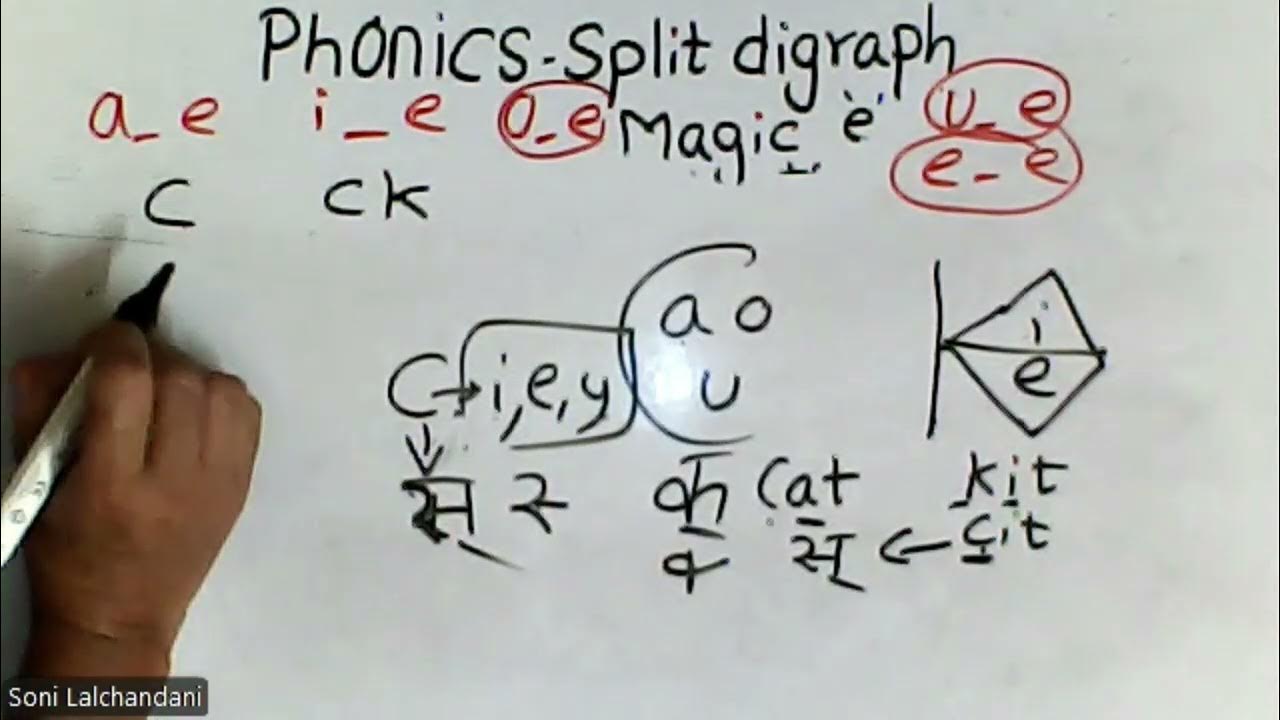 Phonics-Split digraph
a_e i_e o_e Magic 'e' u_e
e_e
c ck
a o
i
C→i,e,y u
e
स स् क Cat kit
क् स् ← cit
Soni Lalchandani